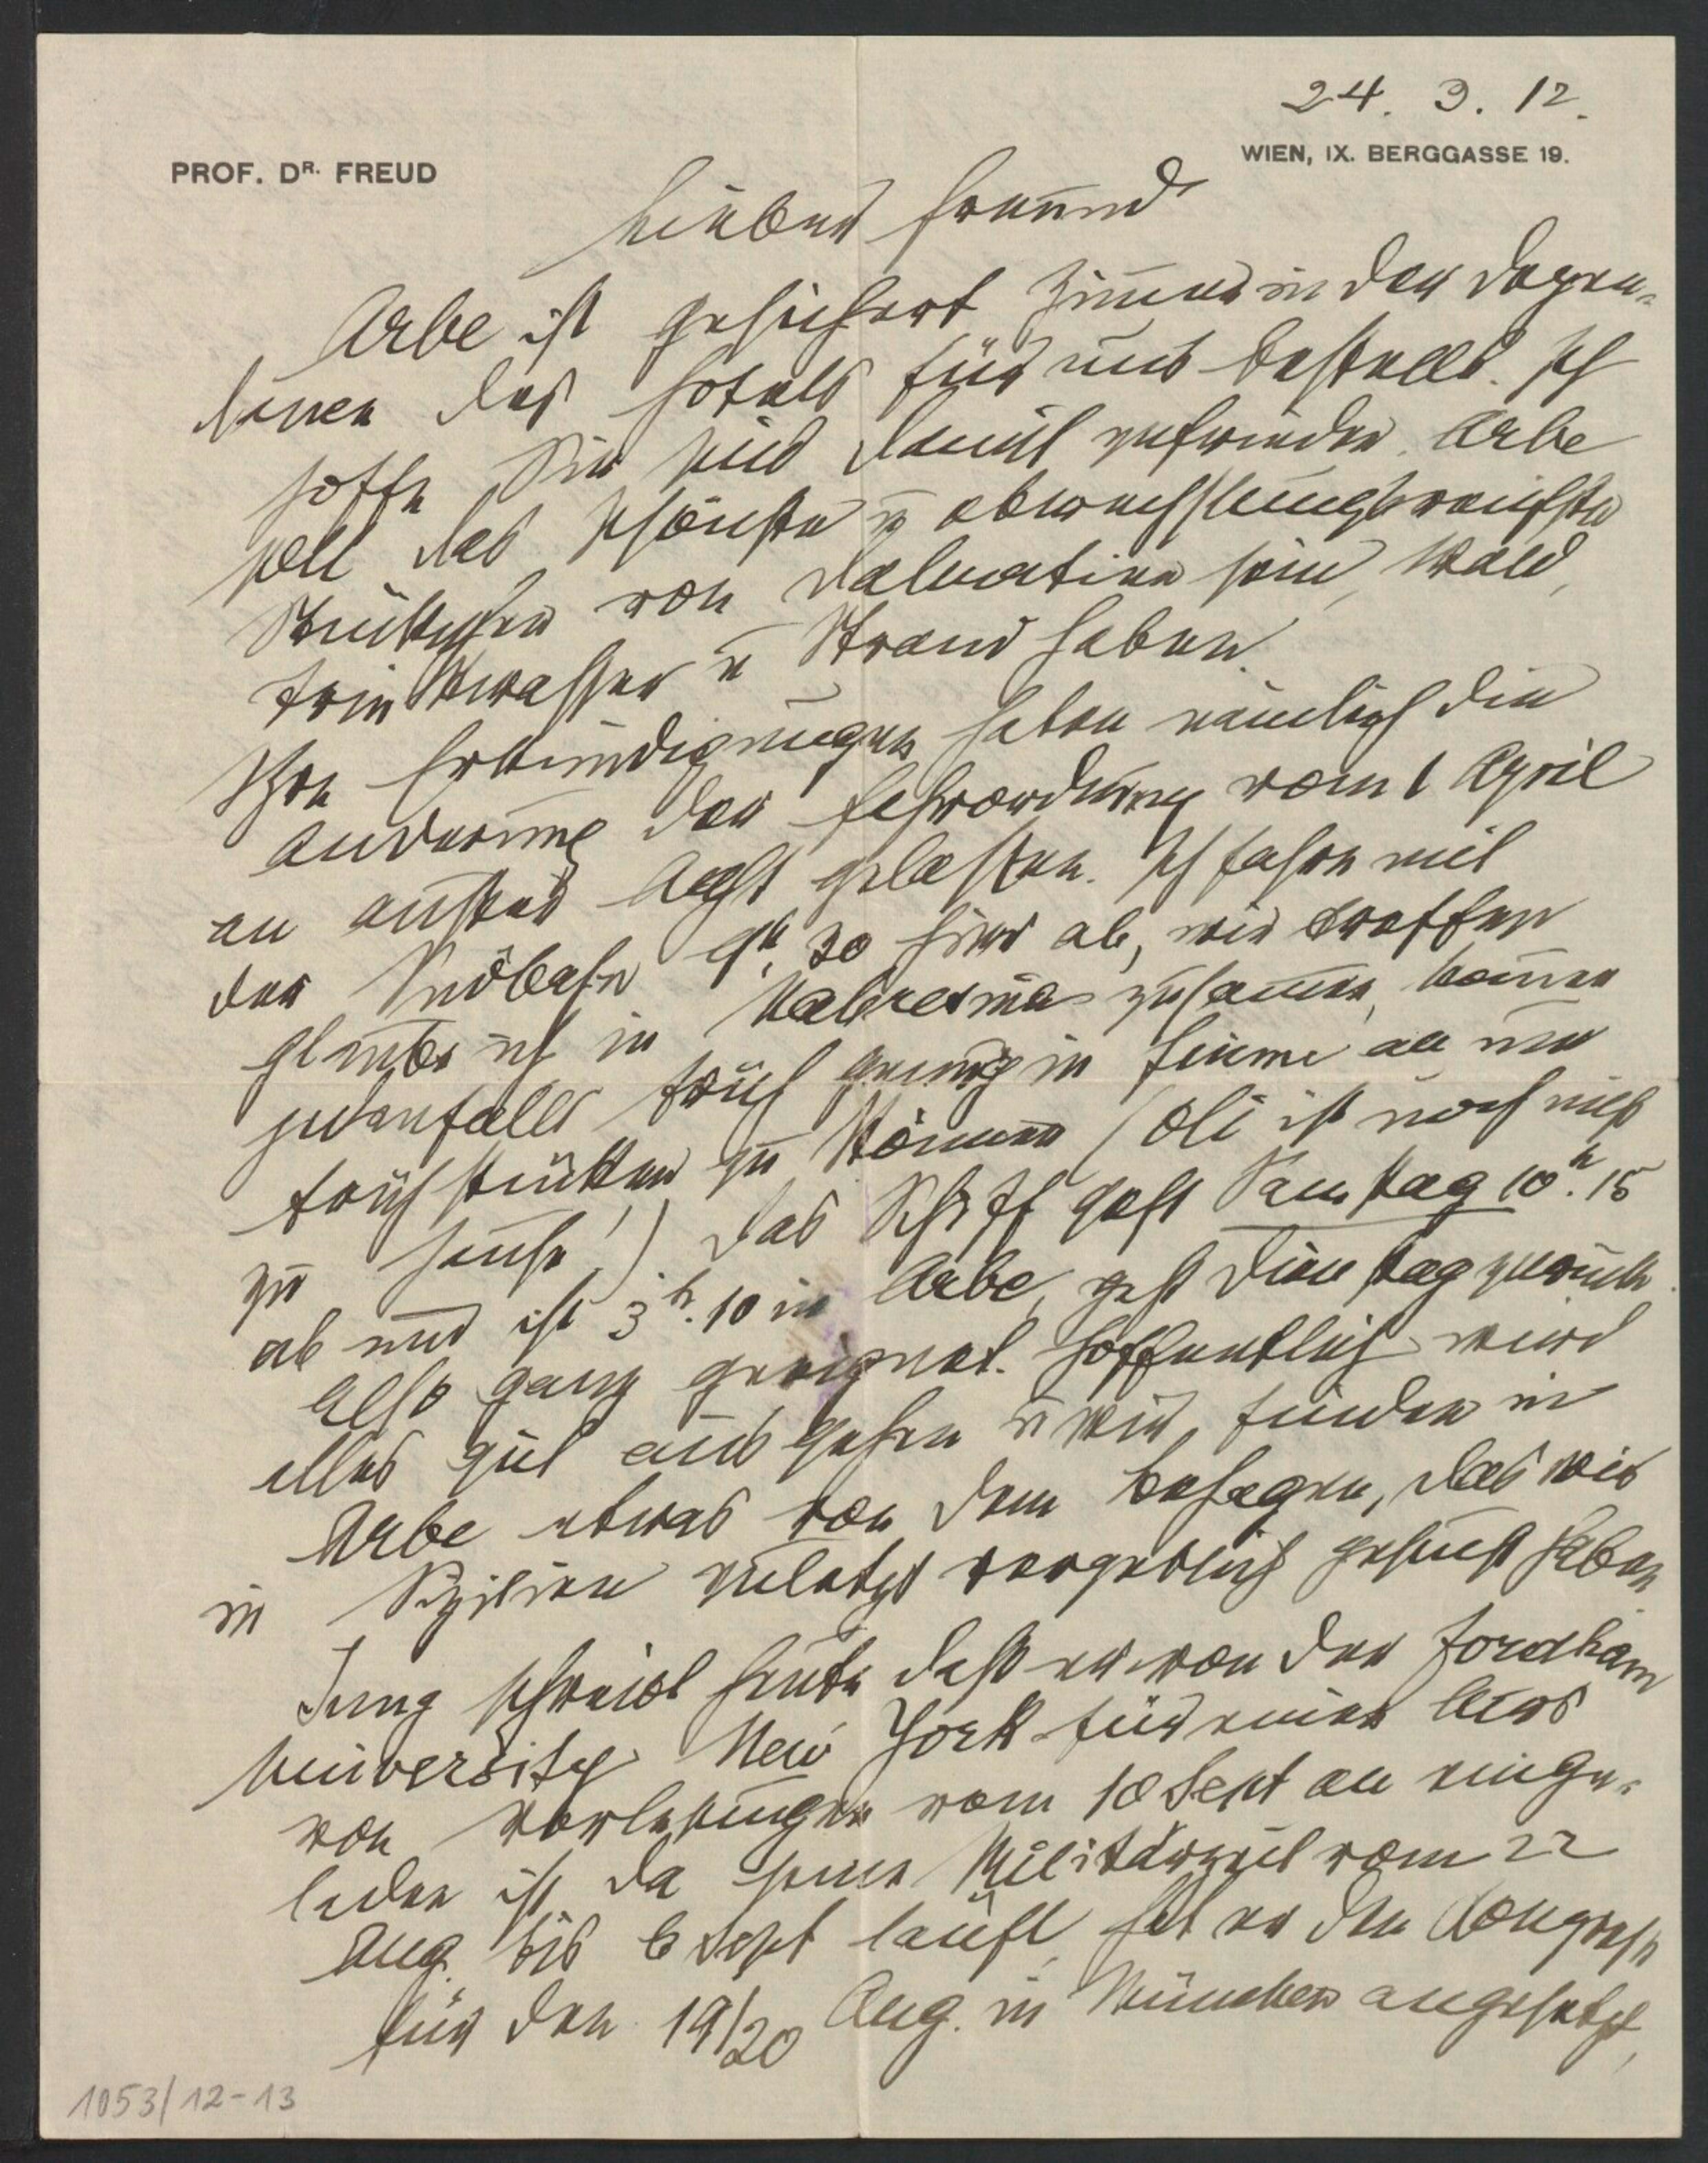 24. 3. 12.
PROF. DR. FREUD
WIEN, IX. BERGGASSE 19.
Lieber Freund
Arbe ist gesichert Zimmer in der Depen-
dance des Hotels für uns bestellt. Ich
hoffe Sie sind damit zufrieden. Arbe
soll das schönste u abwechslungsreichste
Stückchen von Dalmatien sein, Wald,
Trinkwasser u Strand haben.
Ihre Erkundigungen haben nämlich die
Änderung der Fahrordnung vom 1 April
an außer Acht gelassen. Ich fahre mit
der Südbahn 9h 30 hier ab, wir treffen
glaube ich in Nabresina zusammen, kommen
jedenfalls früh genug in Fiume an um
frühstücken zu können (Oli ist noch nicht
zu Hause!) Das Schiff geht Samstag 10h. 15
ab und ist 3h. 10 in Arbe, geht Dienstag zurück.
also ganz geeignet. Hoffentlich wird
alles gut ausgehen u wir finden in
Arbe etwas von dem Behagen, das wir
in Sizilien zuletzt vergeblich gesucht haben
Jung schreibt heute daß er von der Fordham
University New York für einen Kurs
von Vorlesungen vom 10 Sept an einge-
laden ist Da seine Militärzeit vom 22
Aug. bis 6 Sept läuft, hat er den Congreß
für den 19/20 Aug. in München angesetzt,
1053/12-13